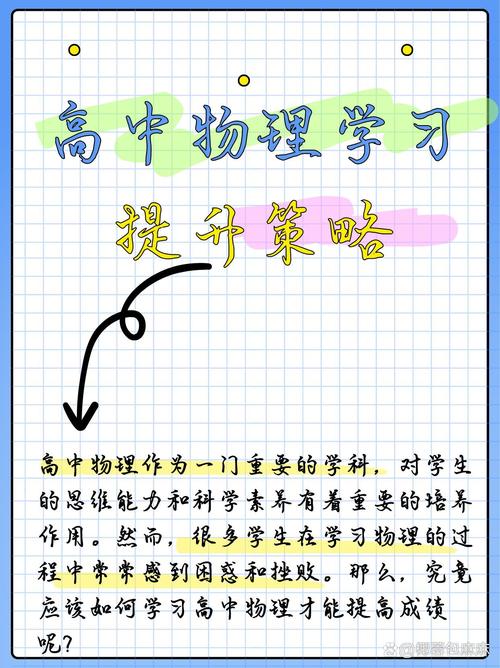 高中物理学习
提升策略
高中物理作为一门重要的学科，对学生
的思维能力和科学素养有着重要的培养
作用。然而，很多学生在学习物理的过
程中常常感到困惑和挫败。那么，究竟
应该如何学习高中物理才能提高成绩
呢？